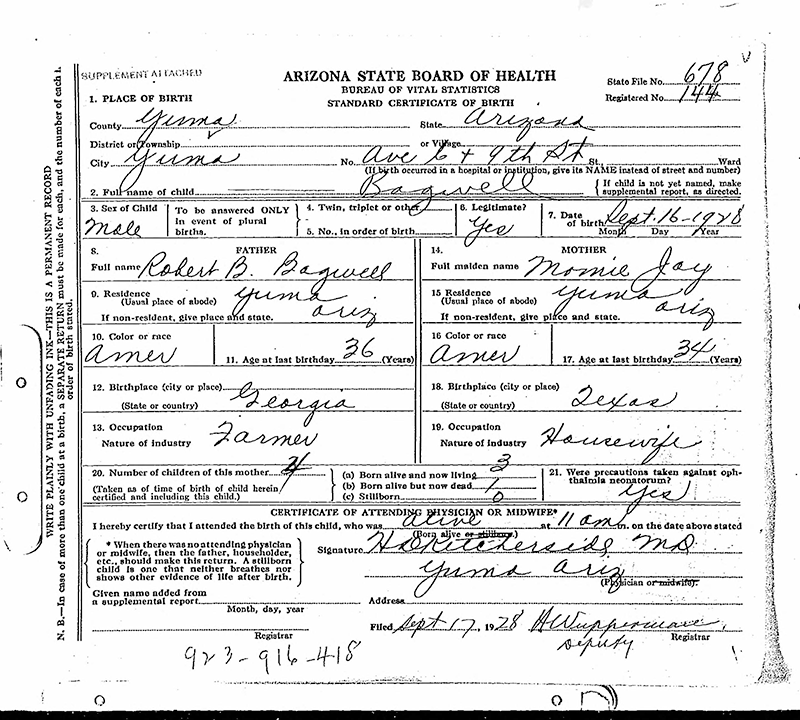 SUPPLEMENT ATTACHED
ARIZONA STATE BOARD OF HEALTH
BUREAU OF VITAL STATISTICS
STANDARD CERTIFICATE OF BIRTH
State File No. 678
Registered No. 144
1. PLACE OF BIRTH
County Yuma State Arizona
District or Township or Village
City Yuma No. Ave 6 + 9th St St., Ward
(If birth occurred in a hospital or institution, give its NAME instead of street and number)
2. Full name of child Bagwell { If child is not yet named, make supplemental report, as directed.
3. Sex of Child Male
To be answered ONLY in event of plural births.
4. Twin, triplet or other
5. No., in order of birth
6. Legitimate? Yes
7. Date of birth Sept. 16-1928
Month Day Year
8. FATHER
Full name Robert B. Bagwell
9. Residence (Usual place of abode) Yuma Ariz
If non-resident, give place and state.
10. Color or race Amer
11. Age at last birthday 36 (Years)
12. Birthplace (city or place)
(State or country) Georgia
13. Occupation
Nature of Industry Farmer
14. MOTHER
Full maiden name Momie Jay
15 Residence (Usual place of abode) Yuma Ariz
If non-resident, give place and state.
16 Color or race Amer
17. Age at last birthday 34 (Years)
18. Birthplace (city or place)
(State or country) Texas
19. Occupation
Nature of Industry Housewife
20. Number of children of this mother 4
(Taken as of time of birth of child herein certified and including this child.)
(a) Born alive and now living 3
(b) Born alive but now dead 1
(c) Stillborn 0
21. Were precautions taken against ophthalmia neonatorum? Yes
CERTIFICATE OF ATTENDING PHYSICIAN OR MIDWIFE*
I hereby certify that I attended the birth of this child, who was alive at 11 am. on the date above stated
(Born alive or stillborn)
* When there was no attending physician or midwife, then the father, householder, etc., should make this return. A stillborn child is one that neither breathes nor shows other evidence of life after birth.
Signature MD
Yuma Ariz
(Physician or midwife).
Given name added from a supplemental report
Month, day, year
Address
Registrar
Filed Sept 17, 1928
Deputy Registrar
923-916-418
WRITE PLAINLY WITH UNFADING INK—THIS IS A PERMANENT RECORD
N. B.—In case of more than one child at a birth, a SEPARATE RETURN must be made for each, and the number of each in order of birth stated.